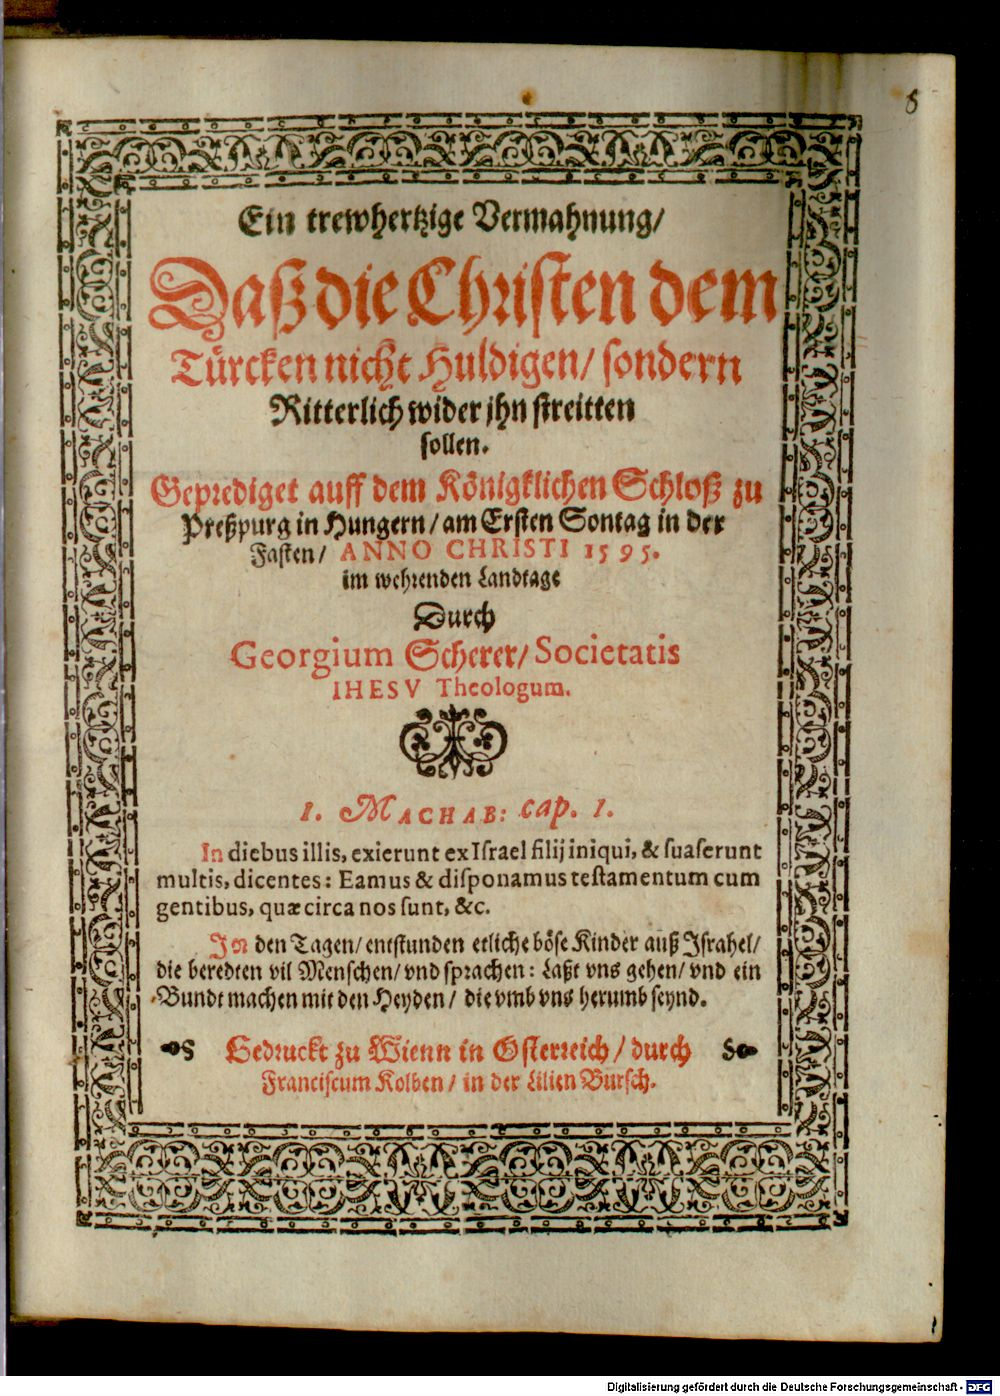 8
Ein trewhertzige Vermahnung/
Daß die Christen dem
Türcken nicht Huldigen/ sondern
Ritterlich wider jhn streitten
sollen.
Geprediget auff dem Königklichen Schloß zu
Preßpurg in Hungern/ am Ersten Sontag in der
Fasten/ ANNO CHRISTI 1595.
im wehrenden Landtage
Durch
Georgium Scherer/ Societatis
IHESV Theologum.
1. MACHAB: cap. 1.
In diebus illis, exierunt ex Israel filij iniqui, & suaserunt
multis, dicentes: Eamus & disponamus testamentum cum
gentibus, quæ circa nos sunt, &c.
In den Tagen/ entstunden etliche böse Kinder auß Israhel/
die beredten vil Menschen/ vnd sprachen: Laßt vns gehen/ vnd ein
Bundt machen mit den Heyden/ die vmb vns herumb seynd.
Gedruckt zu Wienn in Osterreich/ durch
Franciscum Kolben/ in der Lilien Bursch.
Digitalisierung gefördert durch die Deutsche Forschungsgemeinschaft - DFG